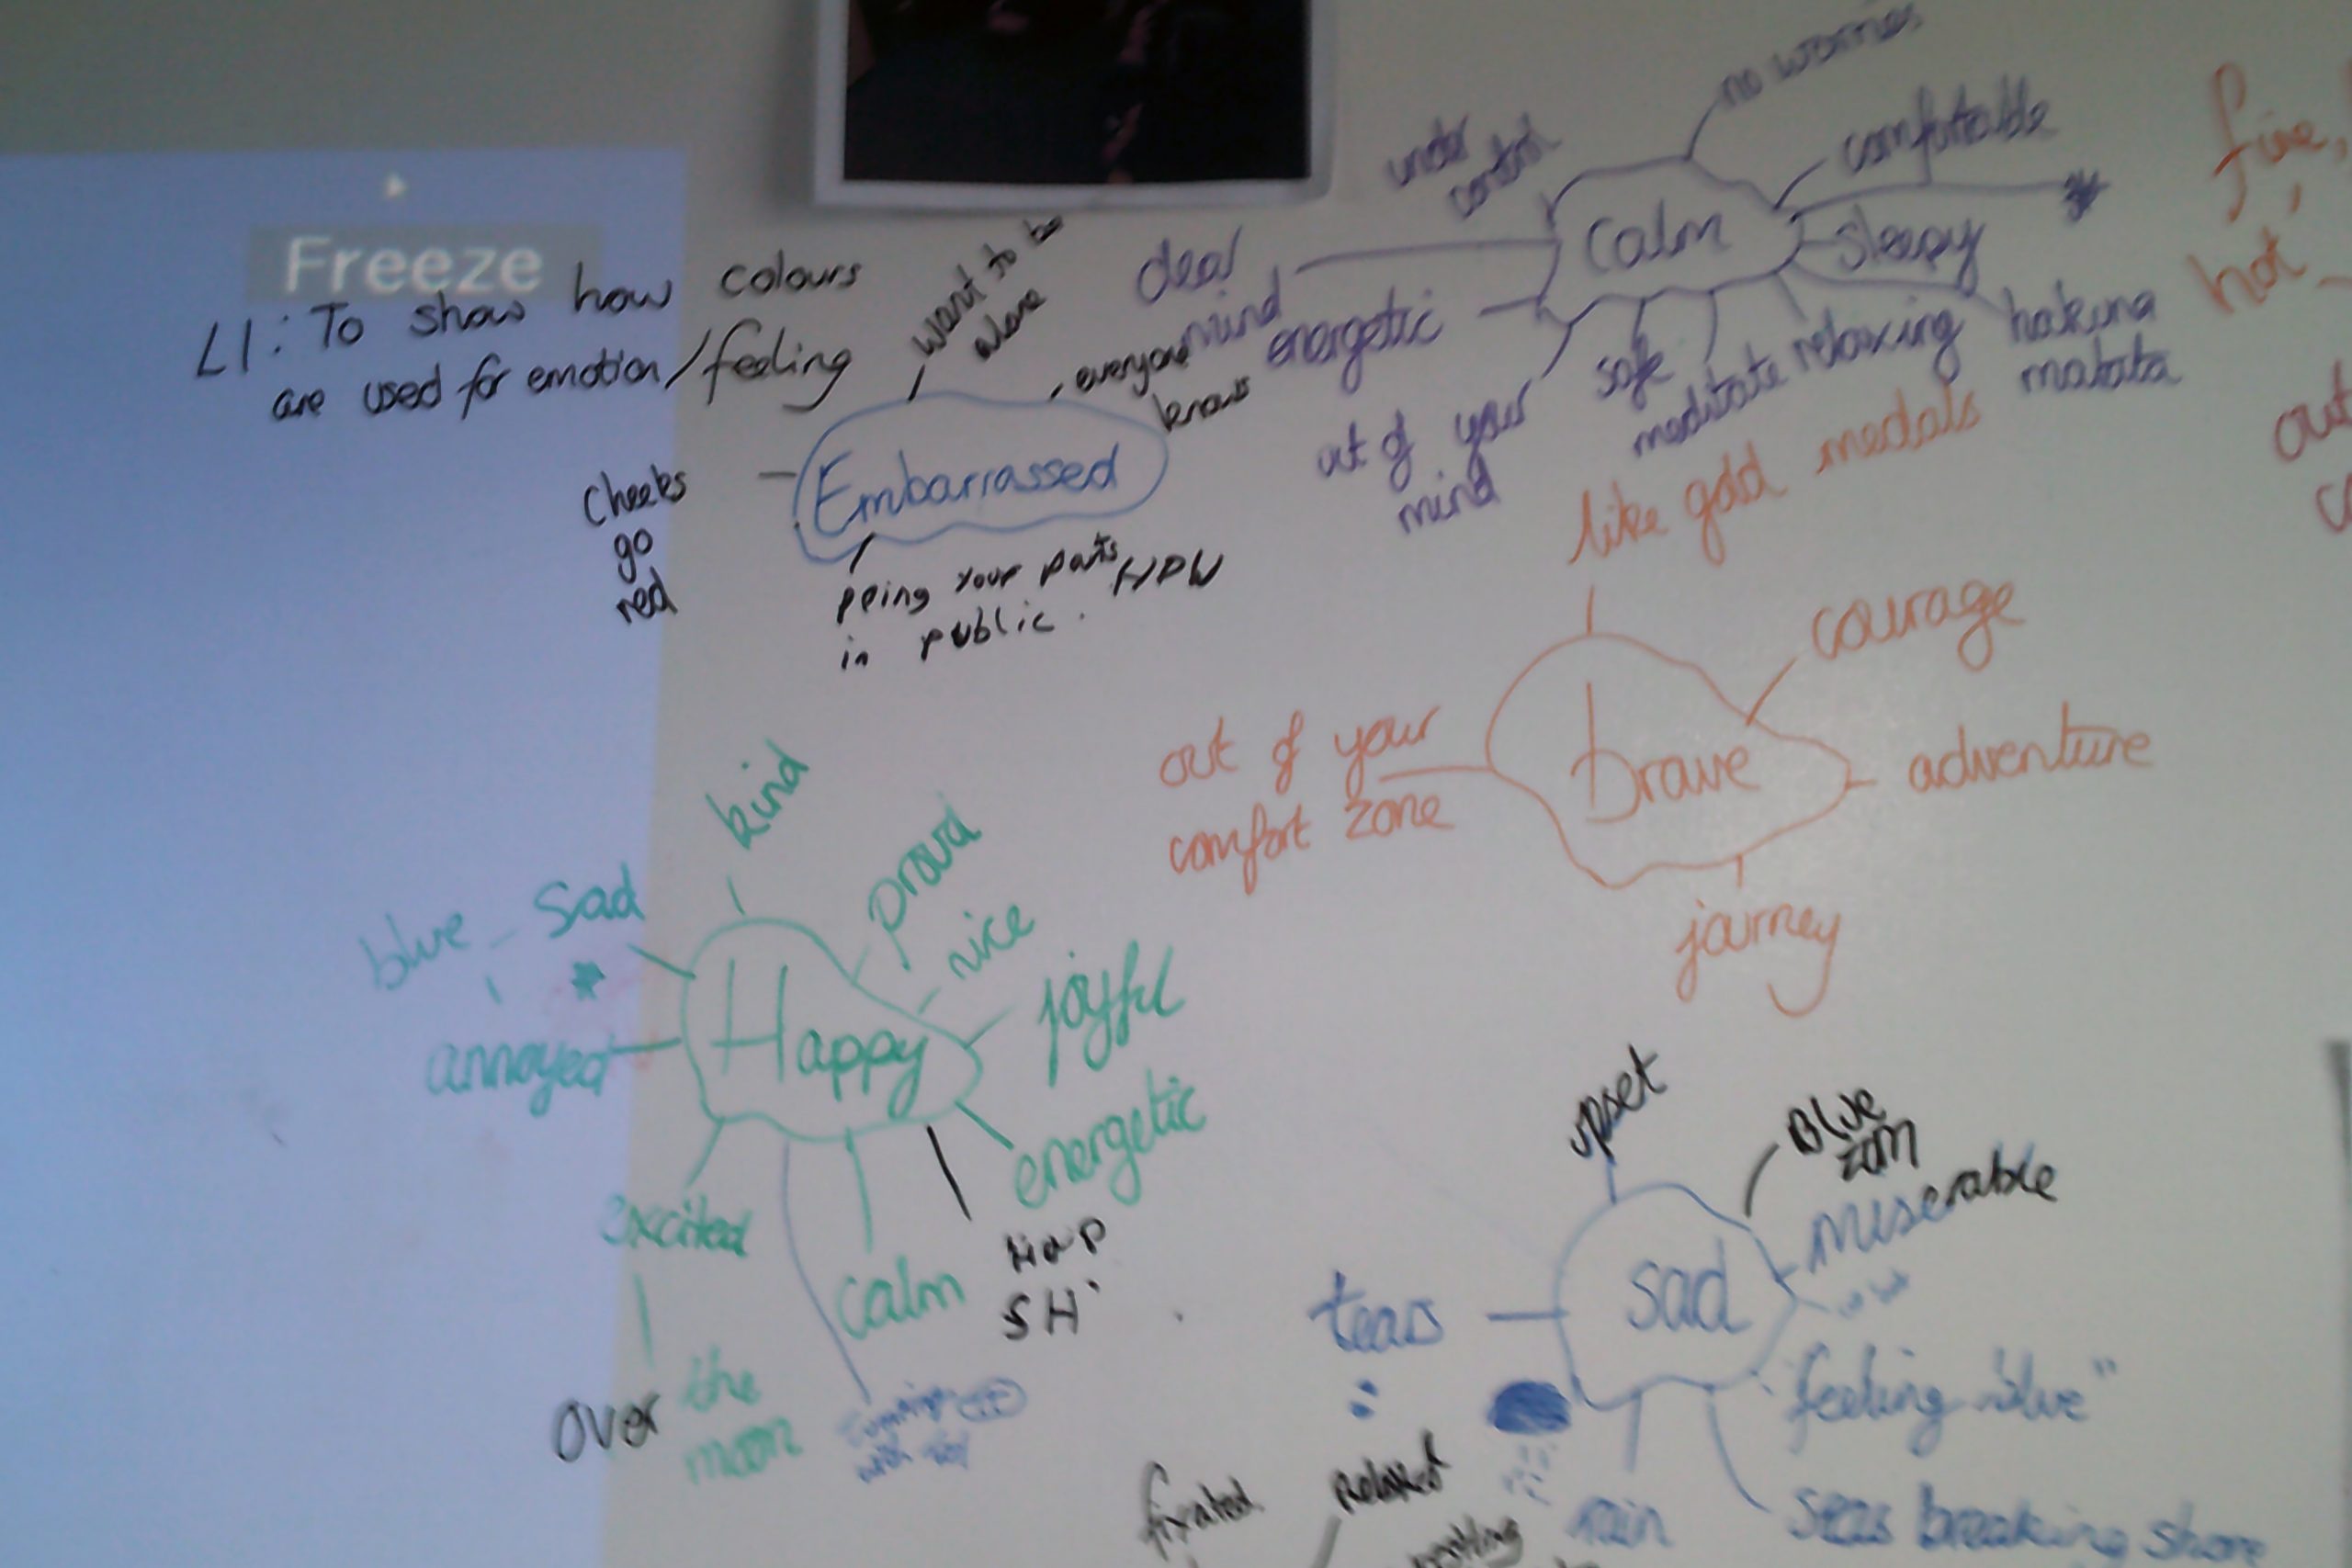 Freeze
LI: To show how colours
are used for emotion/feeling
want to be
alone
everyone
knows
Embarrassed
cheeks
go
red
peing your pants
in public.
no worries
comfortable
under
control
Calm
sleepy
clear
mind
energetic
out of your
mind
safe
meditate
relaxing
hakuna
matata
fire,
hot
out
like gold medals
courage
brave
adventure
out of your
comfort zone
journey
kind
proud
nice
blue
sad
joyful
Happy
annoyed
energetic
excited
calm
over the
moon
upset
Blue
miserable
sad
tears
feeling blue"
rain
seas breaking shore
fixated
relaxed